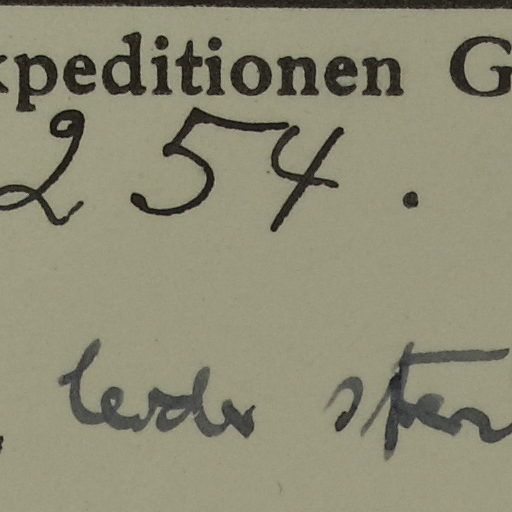 xpeditionen G
254.
leider ster